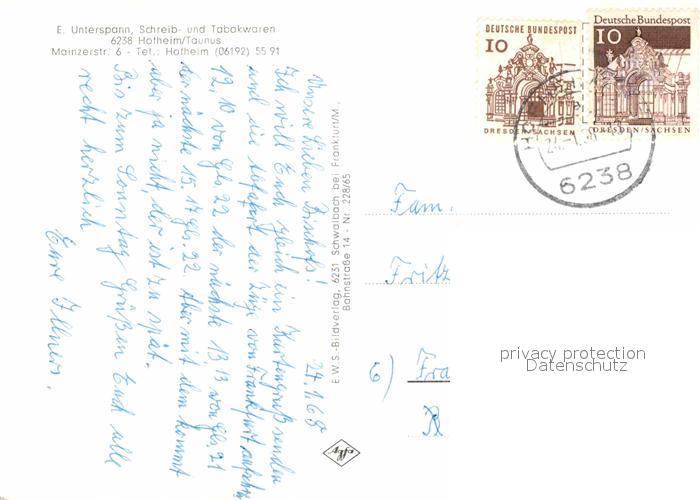 E. Unterspann, Schreib- und Tabakwaren
6238 Hofheim/Taunus
Mainzerstr. 6 - Tel.: Hofheim (06192) 55 91
24.1.68
Unsere lieben Bischofs!
Ich will Euch gleich ein Kartengruß senden
und die Abfahrt der Züge von Frankfurt aufschr.
12,10 von Gls 22 der nächste 13 13 von Gls. 21
der nächste 15,17 Gls. 22. Aber mit dem kommt
aber ja nicht, der ist zu spät.
Bis zum Sonntag Grüßen Euch alle
recht herzlich
Eure Illners.
E.W.S.-Bildverlag, 6231 Schwalbach bei Frankfurt/M.,
Bahnstraße 14 - Nr. 228/65
DEUTSCHE BUNDESPOST
10
DRESDEN/SACHSEN
Deutsche Bundespost
10
DRESDEN/SACHSEN
6238
Fam.
Fritz
6) Fra
privacy protection
Datenschutz